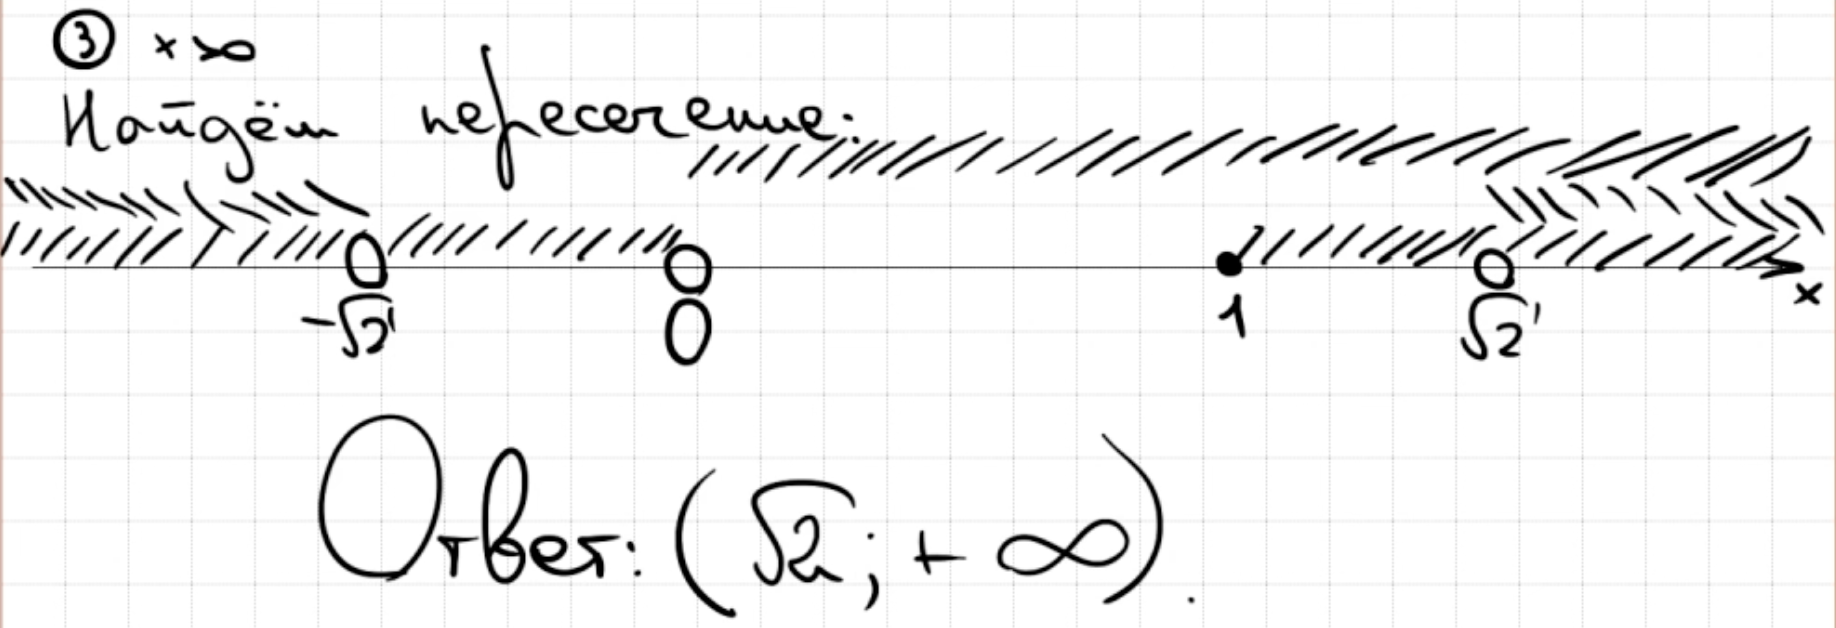 ③ x>0
Найдём пересечение:
-√2 0 1 √2 x
Ответ: (√2; +∞).